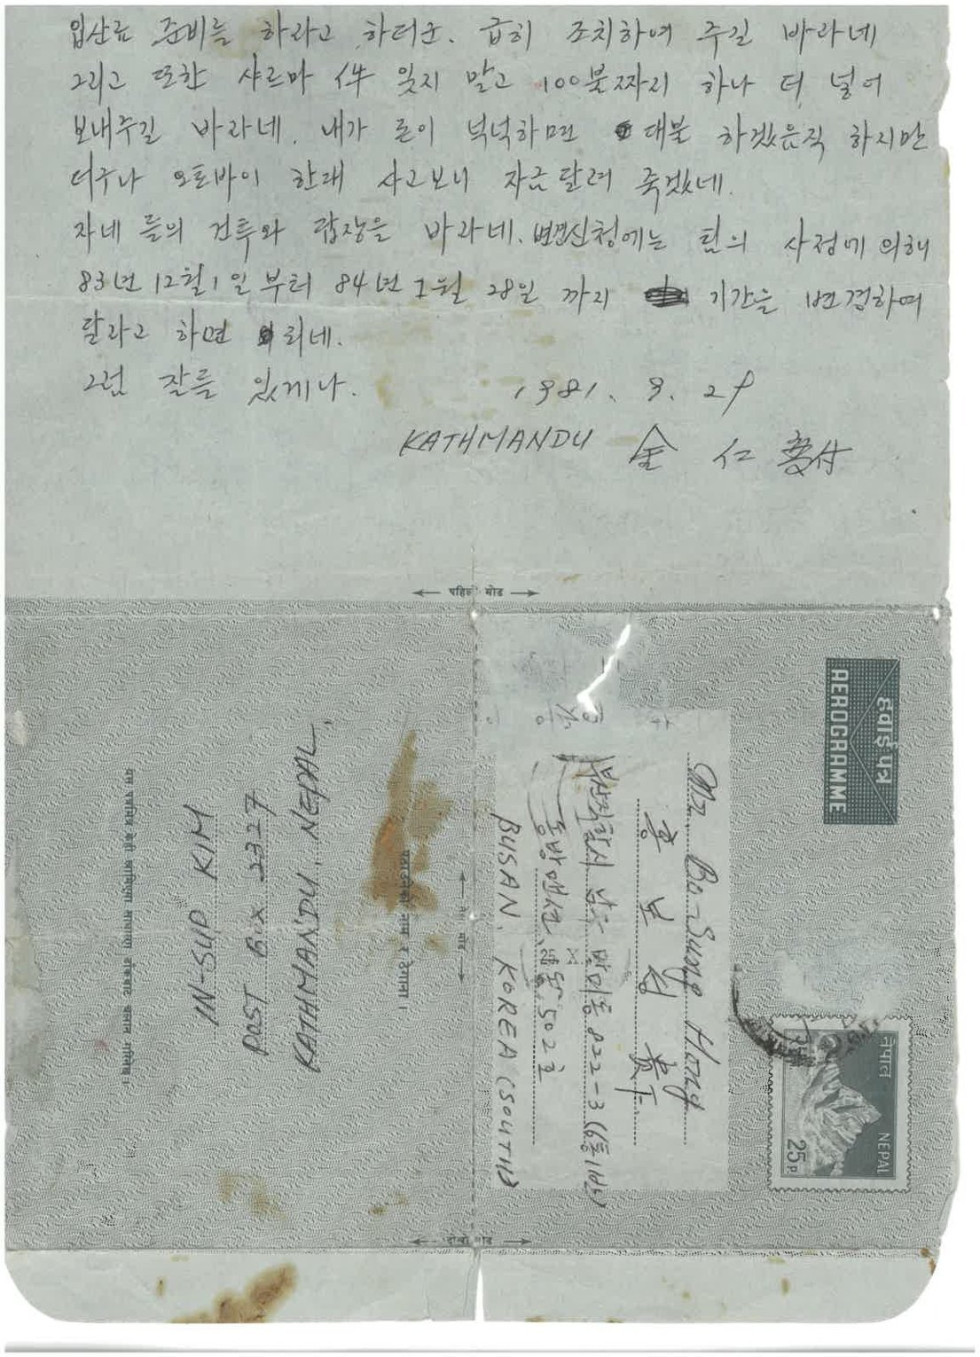 입산료 준비를 하라고 하더군. 급히 조치하여 주길 바라네
그리고 또한 샤르마 件 잊지 말고 100불짜리 하나 더 넣어
보내주길 바라네. 내가 돈이 넉넉하면 대불 하겠은직 하지만
더구나 오토바이 한대 사고보니 자금 달려 죽겠네.
자네 들의 건투와 을 바라네. 변경신청에는 팀의 사정에 의해
83년 12월 1일 부터 84년 1월 28일 까지 기간을 변경하여
달라고 하면 되네.
그럼 잘들 있게나. 1981. 9. 29
KATHMANDU 金 仁
पहिलो मोड
हवाई पत्र
AEROGRAMME
नेपाल
NEPAL
25 P
Mr. Bo-Sung Hong
홍 보 성 貴下
부산직할시 남구 망미동 822-3 (6통1반)
동방맨션 동 502호
BUSAN. KOREA (SOUTH)
तेस्रो मोड
पठाउनेको नाम र ठेगाना ।
IN-SUP KIM
POST BOX 2327
KATHMANDU. NEPAL.
दोस्रो मोड